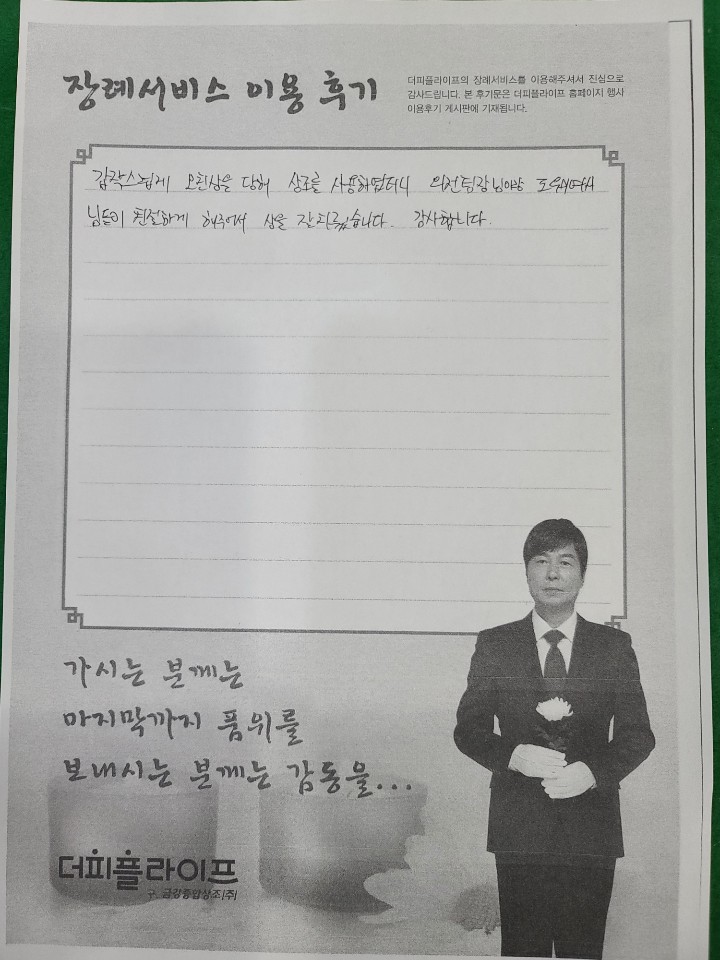 장례서비스 이용 후기
더피플라이프의 장례서비스를 이용해주셔서 진심으로
감사드립니다. 본 후기문은 더피플라이프 홈페이지 행사
이용후기 게시판에 기재됩니다.
갑작스럽게 모친상을 당해 상조를 사용하였더니 의전팀장님이랑 도우미여사
님들이 친절하게 해주어서 상을 잘 치르었습니다. 감사합니다.
가시는 분께는
마지막까지 품위를
보내시는 분께는 감동을...
더피플라이프
구. 금강종합상조(주)